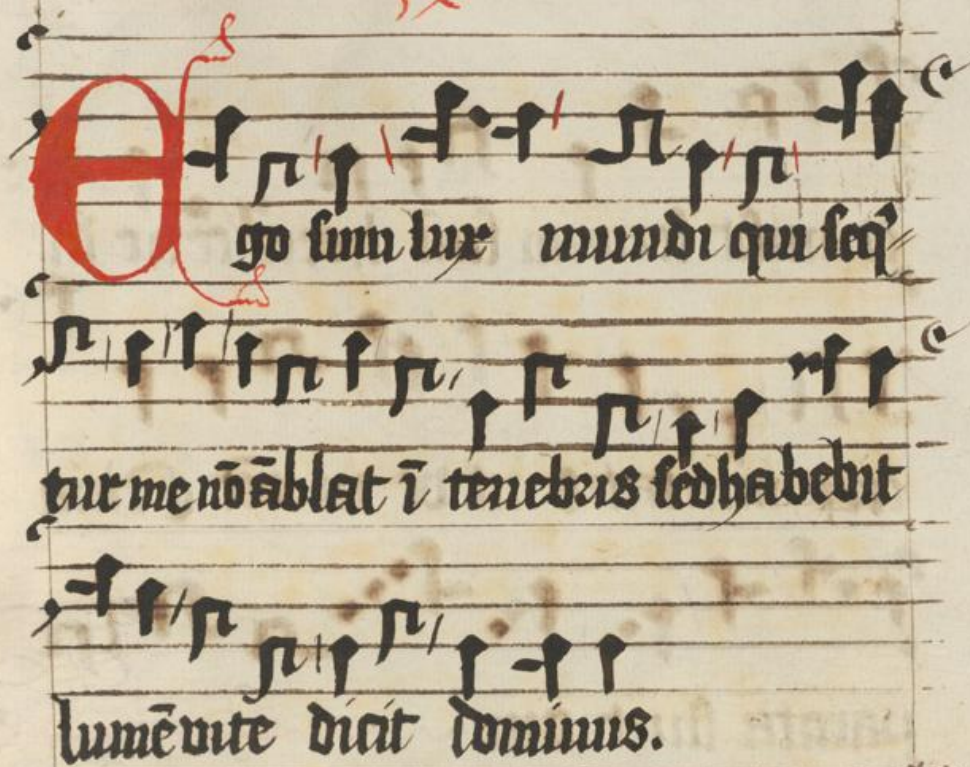 Ego sum lux mundi qui seq᷎⸗
tur me nō āblat ī tenebris sed habebit
lumē vite dicit dominus.